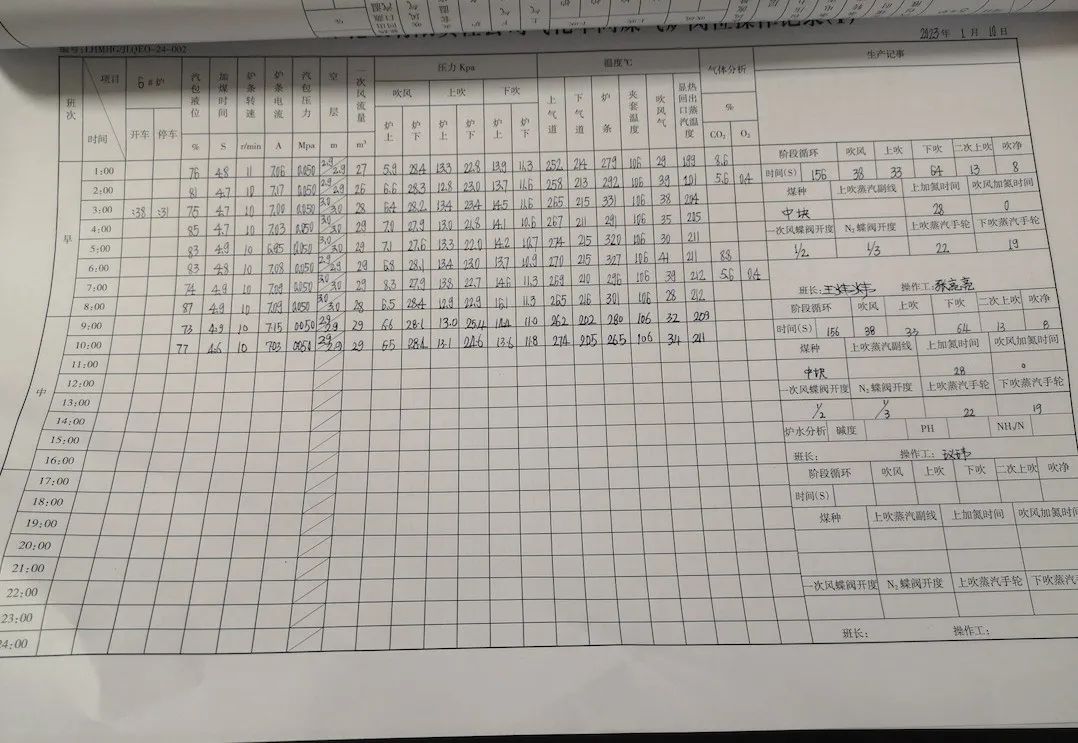 编号:LHMHG/JLQEO-24-002
2023年 1月 10日
班次 项目 时间 6#炉 开车 停车 汽包液位 % 加煤时间 S 炉条转速 r/min 炉条电流 A 汽包压力 Mpa 空层 m 一次风流量 m³ 压力Kpa 吹风 炉上 炉下 上吹 炉上 炉下 下吹 炉上 炉下 温度℃ 上气道 下气道 炉条 夹套温度 吹风气 显热回收出口蒸汽温度 气体分析 % CO₂ O₂ 生产记事
早
1:00 76 4.8 11 7.06 0.050 2.9/2.9 27 5.9 28.4 13.3 22.8 13.9 11.3 252 214 279 106 29 199 8.6
2:00 81 4.7 10 7.17 0.050 2.9/2.9 26 6.6 28.3 12.8 23.0 13.7 11.6 258 213 292 106 39 201 5.6 0.4
3:00 :38 :31 75 4.7 10 7.00 0.050 3.0/3.0 28 6.4 28.2 13.4 23.4 14.5 11.6 265 215 331 106 38 204
4:00 85 4.7 10 7.03 0.050 3.0/3.0 29 7.0 27.9 13.0 21.8 14.1 10.6 267 211 291 106 35 205
5:00 83 4.9 10 6.95 0.050 3.0/3.0 29 7.1 27.6 13.3 22.0 14.2 10.7 274 215 320 106 30 211
6:00 83 4.8 10 7.08 0.050 2.9/2.9 29 6.8 28.1 13.4 23.0 13.7 10.9 270 215 327 106 41 211 8.8
7:00 74 4.9 10 7.09 0.050 3.0/3.0 29 8.3 27.9 13.8 22.7 14.6 11.3 269 210 296 106 39 212 5.6 0.4
8:00 87 4.9 10 7.09 0.050 3.0/3.0 28 6.5 28.4 12.9 22.9 16.1 11.3 265 216 301 106 28 212
中
9:00 73 4.9 10 7.15 0.050 2.9/2.9 29 6.6 28.1 13.0 25.4 11.0 262 202 280 106 32 209
10:00 77 4.6 10 7.03 0.050 2.9/2.9 29 6.5 28.1 13.1 24.6 13.6 11.8 274 205 265 106 34 211
11:00
12:00
13:00
14:00
15:00
16:00
17:00
18:00
19:00
20:00
21:00
22:00
23:00
24:00
阶段循环 吹风 上吹 下吹 二次上吹 吹净
时间(S) 156 38 33 64 13 8
煤种 上吹蒸汽副线 上加氮时间 吹风加氮时间
中块 28 0
一次风蝶阀开度 N₂蝶阀开度 上吹蒸汽手轮 下吹蒸汽手轮
1/2 1/3 22 19
班长: 操作工:
阶段循环 吹风 上吹 下吹 二次上吹 吹净
时间(S) 156 38 33 64 13 8
煤种 上吹蒸汽副线 上加氮时间 吹风加氮时间
中块 28 0
一次风蝶阀开度 N₂蝶阀开度 上吹蒸汽手轮 下吹蒸汽手轮
1/2 1/3 22 19
炉水分析 碱度 PH NH₃/N
班长: 操作工:
阶段循环 吹风 上吹 下吹 二次上吹 吹净
时间(S)
煤种 上吹蒸汽副线 上加氮时间 吹风加氮时间
一次风蝶阀开度 N₂蝶阀开度 上吹蒸汽手轮 下吹蒸汽
班长: 操作工: